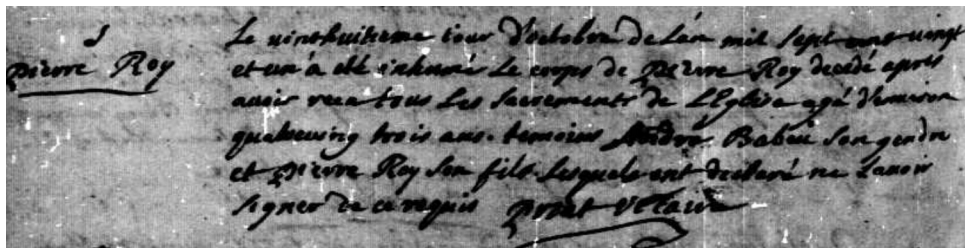 S
pierre Roy
Le vinthuitieme iour d'octobre de L'an mil sept cent vingt
et un a eté inhumé Le corps de pierre Roy decedé apres
auoir receu tous Les sacrements de L'Eglise agé d'enuiron
quatreuing trois ans. temoins André Babeu son gendre
et pierre Roy son fils Lesquels ont declaré ne scauoir
signer de ce requis